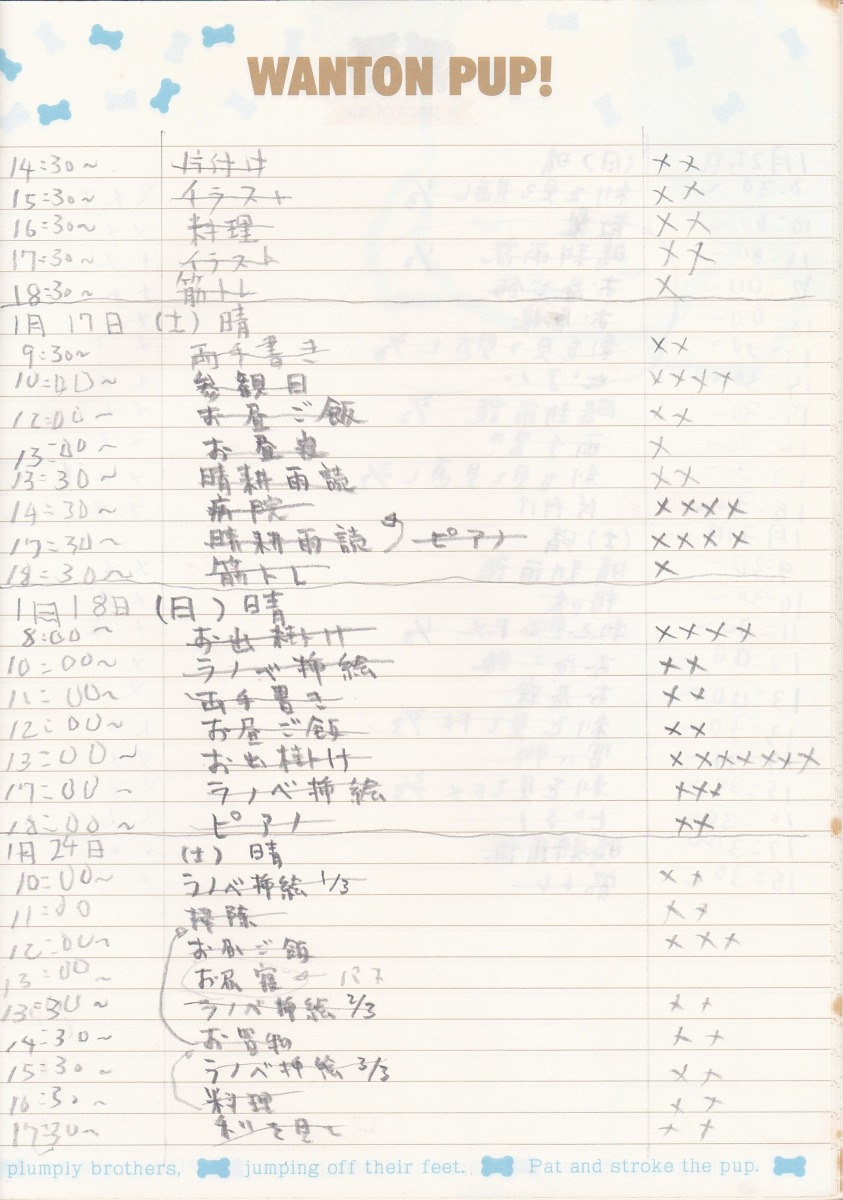 WANTON PUP!
14:30~ 片付け ××
15:30~ イラスト ××
16:30~ 料理 ××
17:30~ イラスト ××
18:30~ 筋トレ ×
1月17日 (土) 晴
9:30~ 両手書き ××
10:00~ 参観日 ××××
12:00~ お昼ご飯 ××
13:00~ お昼寝 ×
13:30~ 晴耕雨読 ××
14:30~ 病院 ××××
17:30~ 晴耕雨読 ピアノ ××××
18:30~ 筋トレ ×
1月18日 (日) 晴
8:00~ お出掛け ××××
10:00~ ラノベ挿絵 ××
11:00~ 両手書き ××
12:00~ お昼ご飯 ××
13:00~ お出掛け ×××××××
17:00~ ラノベ挿絵 ×××
18:00~ ピアノ ××
1月24日 (土) 晴
10:00~ ラノベ挿絵 1/3 ××
11:00 掃除 ××
12:00~ お昼ご飯 ×××
13:00 お昼寝 パス
13:30~ ラノベ挿絵 2/3 ××
14:30~ お買物 ××
15:30~ ラノベ挿絵 3/3 ××
16:30~ 料理 ××
17:30~ を見て ××
plumply brothers, jumping off their feet. Pat and stroke the pup.